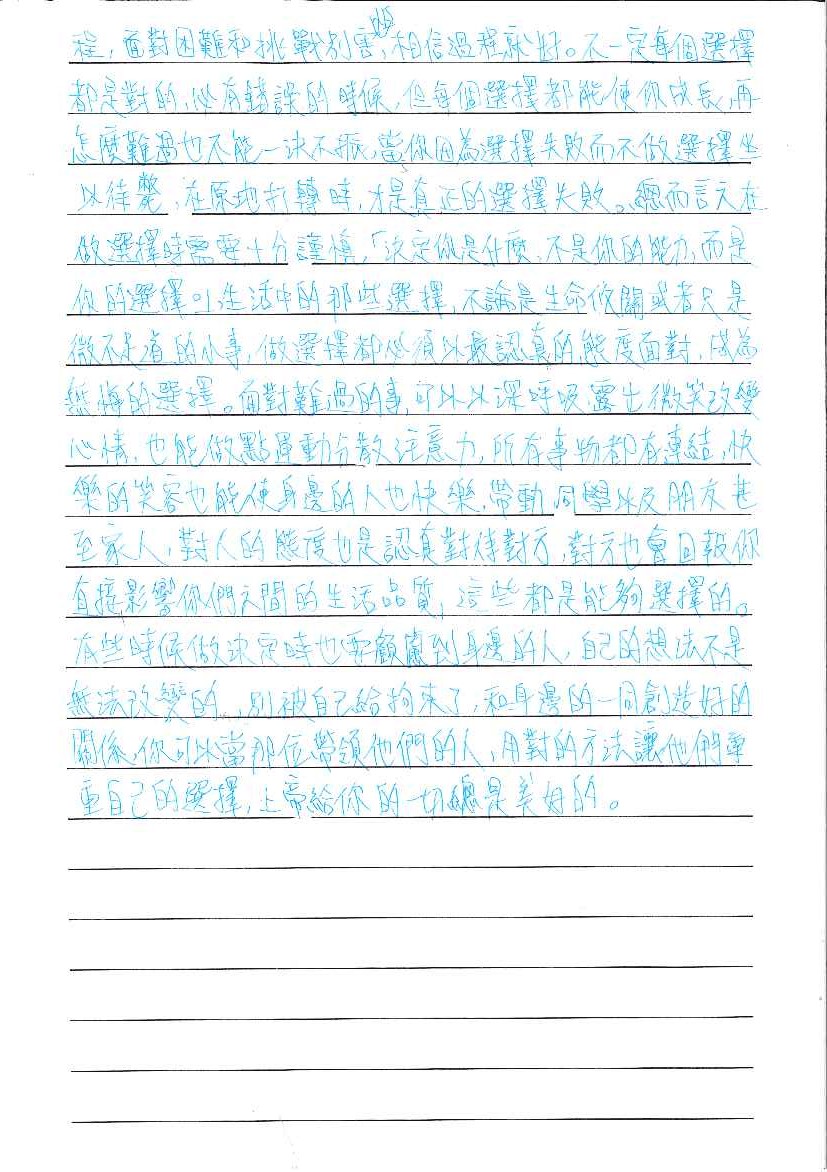 程,面對困難和挑戰別害怕,相信過程就好。不一定每個選擇
都是對的,必有錯誤的時候,但每個選擇都能使你成長,再
怎麼難過也不能一決不振,當你因為選擇失敗而不做選擇坐
以待斃,在原地打轉時,才是真正的選擇失敗。總而言之在
做選擇時需要十分謹慎,「決定你是什麼,不是你的能力,而是
你的選擇。」生活中的那些選擇,不論是生命攸關或者只是
微不足道的小事,做選擇都必須以最認真的態度面對,成為
無悔的選擇。面對難過的事,可以以深呼吸露出微笑改變
心情,也能做點運動分散注意力,所有事物都有連結,快
樂的笑容也能使身邊的人也快樂,帶動同學以及朋友甚
至家人,對人的態度也是認真對待對方,對方也會回報你
直接影響你們之間的生活品質,這些都是能夠選擇的。
有些時候做決定時也要顧慮到身邊的人,自己的想法不是
無法改變的,別被自己給拘束了,和身邊的一同創造好的
關係,你可以當那位帶領他們的人,用對的方法讓他們尊
重自己的選擇,上帝給你的一切總是美好的。